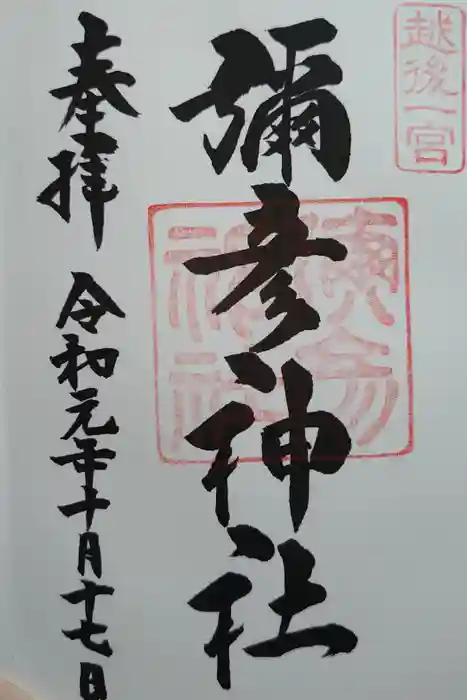 越後一宮
彌彦神社
奉拝
令和元年十月十七日